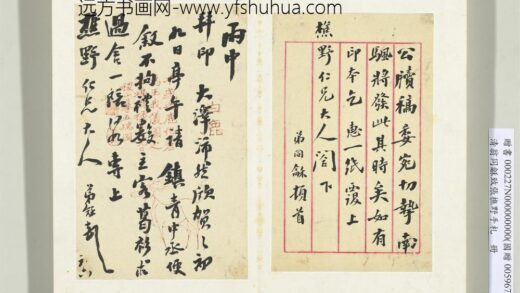 远方书画网-www.yfshuhua.com
公牘稿委宛切摯南
颿將發此其時矣如有
印本乞惠一紙覆上
樵野仁兄大人閣下
弟同龢頓首
丙申
大澤沛然頌賀之初
九日亭午請鎮青中丞便
飯不拘禮數主客葛衫求
過舍一陪以專上
樵野仁兄大人
弟龢頓
白鹿
清翁同龢致張樵野手札 冊